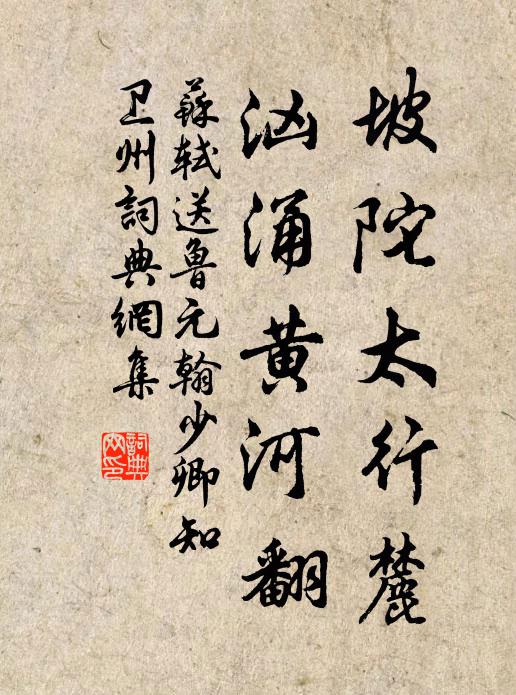 坡陀太行麓
汹涌黄河翻
蘇轼送鲁元翰少卿知
卫州詞典網集
詞典
网印